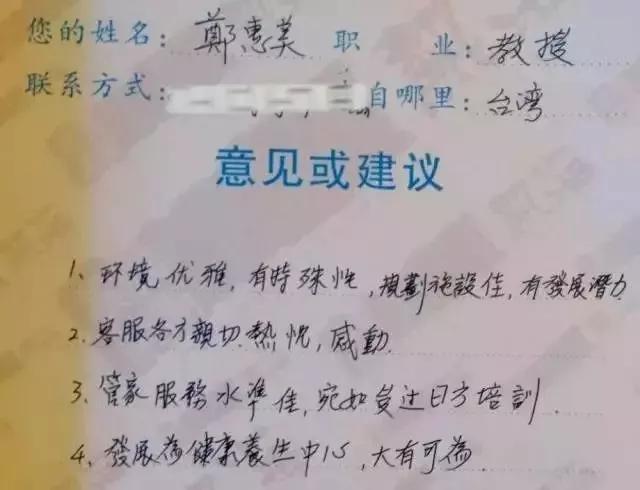 您的姓名：鄭惠美 职 业：教授
联系方式： 自哪里：台湾
意见或建议
1、环境优雅，有特殊性，規劃施設佳，有發展潛力
2、客服各方親切熱忱，感動
3、管家服務水準佳，宛如受过日方培訓
4、發展為健康養生中心，大有可為